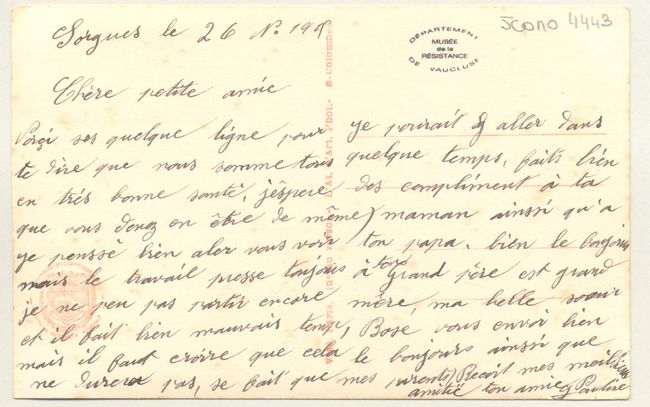 Sorgues le 26 Nº 191
Chère petite amie
Voiçi ses quelque ligne pour
te dire que nous somme tous
en très bonne santé, j'éspere
que vous devez en être de même
je penssé bien aler vous voir
mais le travail presse toujours
je ne peu pas partir encore
et il fait bien mauvais temp,
mais il faut croire que cela
ne durera pas, se fait que
je pourait y aller dans
quelque temps, faits bien
des compliment à ta
maman ainssi qu'a
ton papa. bien le bonjour
à ton grand père est grand
mère, ma belle soeur
Bose vous envoi bien
le bonjours ainssi que
mes parents, Recoit mes meilleurs
amitié ton amie Pauline
DÉPARTEMENT
MUSÉE
de la
RÉSISTANCE
DE VAUCLUSE
JCONO 4443